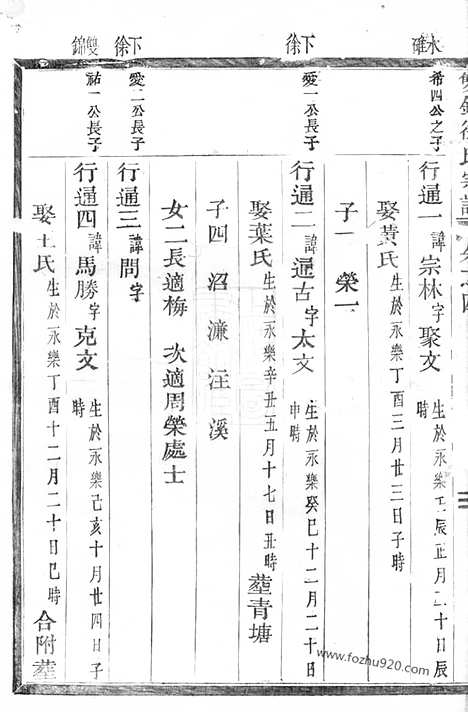 水碓
希四公之子
行通一諱宗林字聚文生於永樂壬辰正月二十日辰時
娶黃氏生於永樂丁酉三月廿三日子時
子一榮一
下徐
愛一公長子
行通二諱通古字太文生於永樂癸巳十二月十四日申時
娶葉氏生於永樂辛丑五月十七日丑時塟青塘
子四沼濂汪溪
女二長適梅次適周榮處士
下徐
愛二公長子
行通三諱問字
雙錦
祐一公長子
行通四諱馬勝字克文生於永樂己亥十月廿四日子時
娶王氏生於永樂丁酉十二月二十日巳時合附塟
www.fozhu920.com